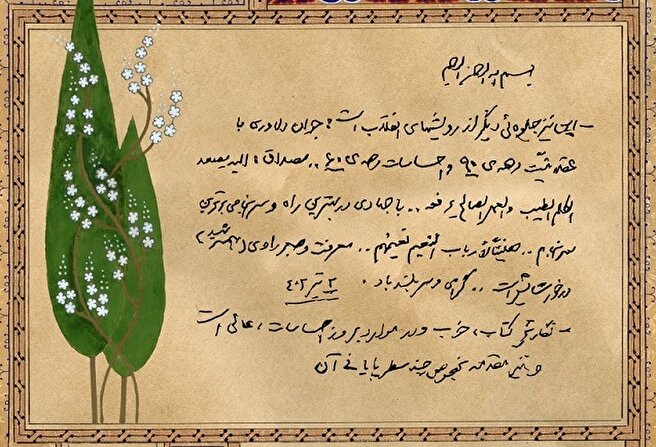 بسم الله الرحمن الرحیم
- این نیز جلوه‌ئی دیگر از رویشهای انقلاب است؛ جوان دلاوری با
عقلانیّت دهه‌ی ۹۰ و احساسات دهه‌ی ۶۰ .. مصداق: الیه یصعد
الکلم الطیب والعمل الصالح یرفعه .. با جهادی در بهترین راه و سرانجامی برترین
سرانجام .. هنیئاً لارباب النعیم نعیمهم .. معرفت و صبر راوی (همسر شهید)
درخور ستایش است .. گرامی و سربلند باد. ۳ تیر ۴۰۲
- نگارش کتاب، خوب و در موارد بروز احساسات، عالی است
و نیز مقدمه بخصوص چند سطر پایانی آن